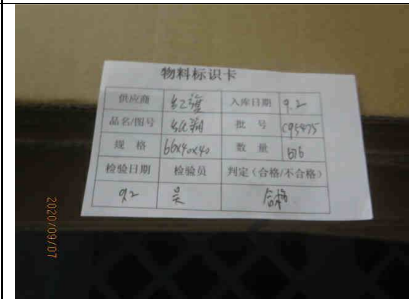 物料标识卡
供应商 红旗 入库日期 9.2
品名/图号 纸箱 批 号 C95475
规 格 66x40x40 数 量 506
检验日期 检验员 判定（合格/不合格）
9.2 吴 合格
2020/09/07